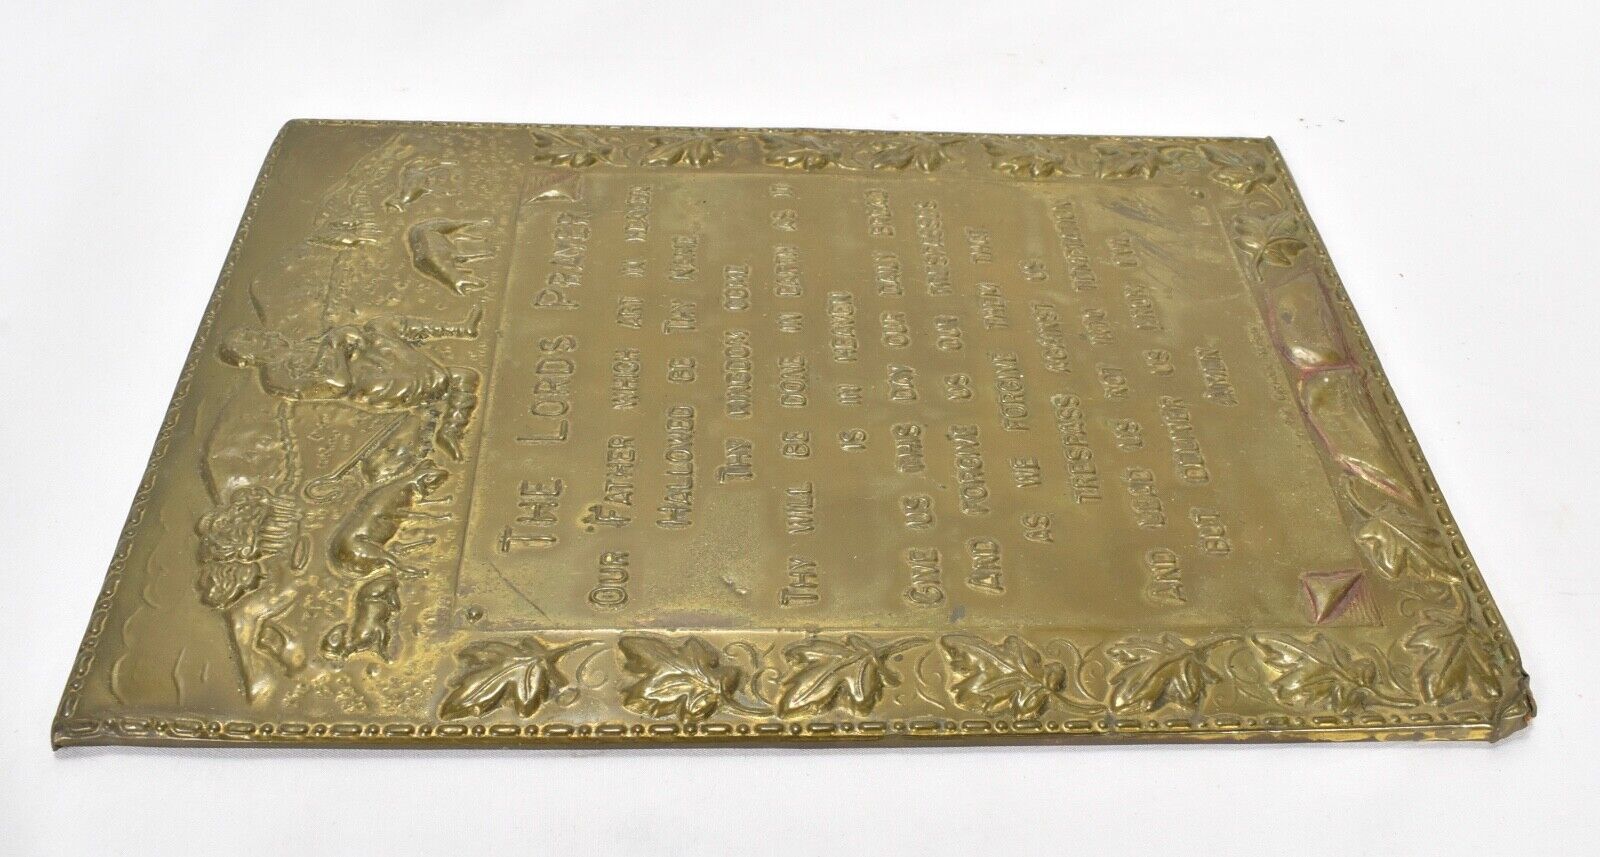 THE LORDS PRAYER
OUR FATHER WHICH ART IN HEAVEN
HALLOWED BE THY NAME
THY KINGDOM COME
THY WILL BE DONE IN EARTH AS IT
IS IN HEAVEN
GIVE US THIS DAY OUR DAILY BREAD
AND FORGIVE US OUR TRESPASSES
AS WE FORGIVE THEM THAT
TRESPASS AGAINST US
AND LEAD US NOT INTO TEMPTATION
BUT DELIVER US FROM EVIL
AMEN